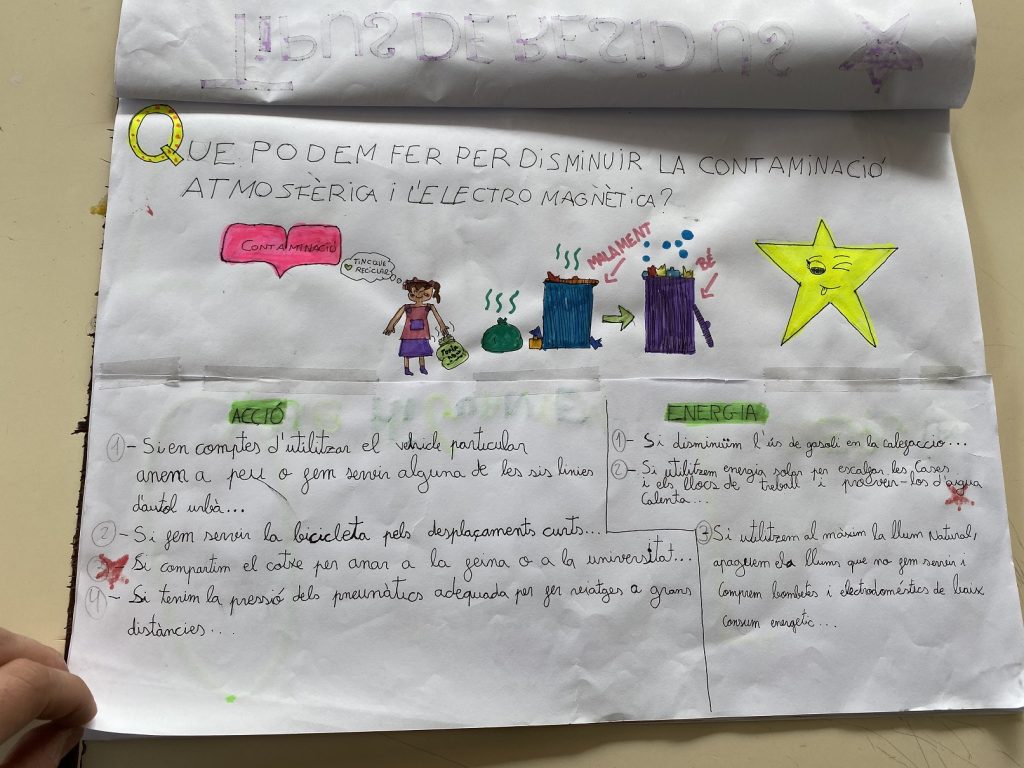 TIPUS DE RESIDUS
QUE PODEM FER PER DISMINUIR LA CONTAMINACIÓ
ATMOSFÈRICA I L'ELECTRO MAGNÈTICA?
CONTAMINACIÓ
TINC QUE
RECICLAR
MALAMENT
BÉ
ACCIÓ
1- Si en comptes d'utilitzar el vehicle particular
anem a peu o fem servir alguna de les sis línies
d'autol urbà...
2- Si fem servir la bicicleta pels desplaçaments curts...
Si compartim el cotxe per anar a la feina o a la universitat...
4- Si tenim la pressió dels pneunàtics adequada per fer viatges a grans
distàncies...
ENERGIA
1- Si disminuïm l'ús de gasoli en la calefaccio...
2- Si utilitzem energia solar per escalfar les cases
i els llocs de treball i proveir-los d'aigua
Calenta...
3- Si utilitzem al màxim la llum Natural,
apaguem els llums que no fem servir i
Comprem bombetes i electrodoméstics de baix
Consum energetic...